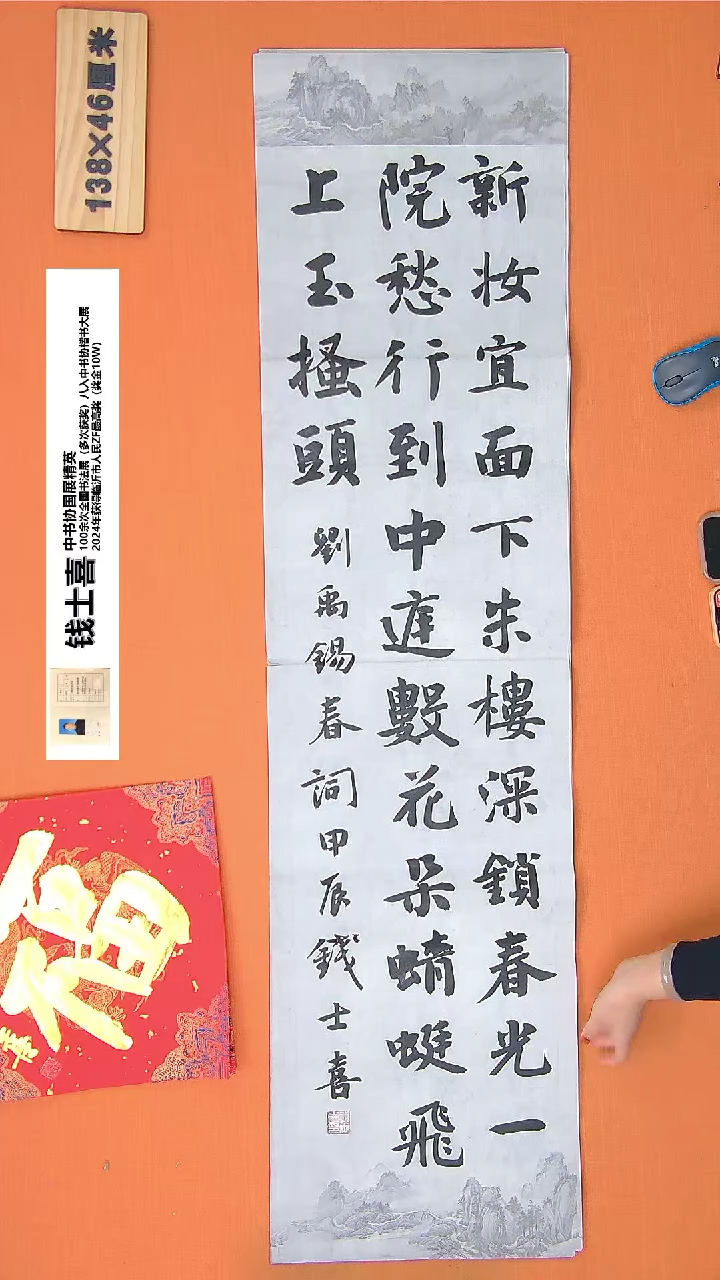 新妆宜面下朱樓深鎖春光一
院愁行到中庭數花朵蜻蜓飛
上玉搔頭
劉禹錫春词甲辰錢士喜
138×46厘米
钱士喜 中书协国展精英
100余次全国书法展（多次获奖）八入中书协楷书大展
2024年获得临沂市人民ZF最高奖（奖金10W）
福